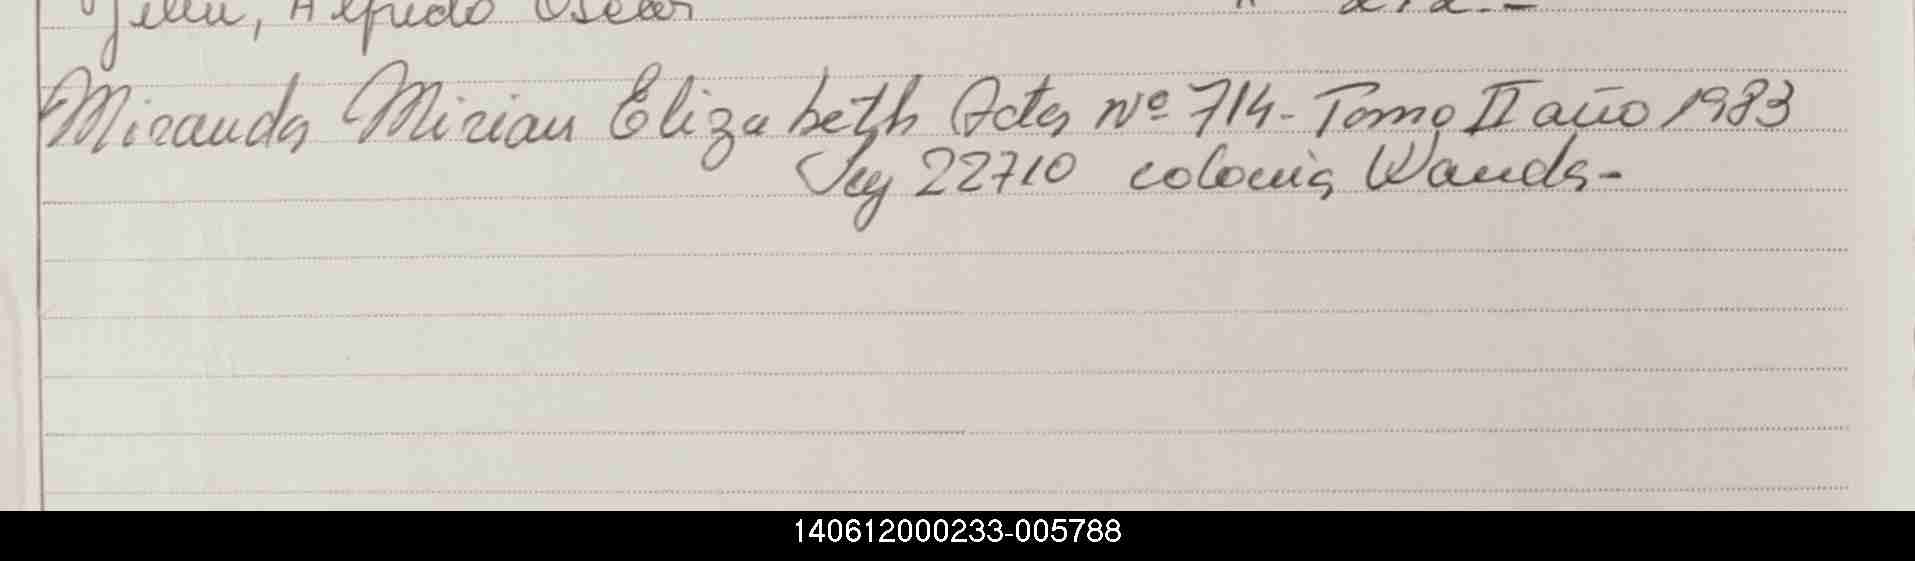 Alfredo Oscar " 212.-
Miranda Mirian Elizabeth Acta Nº 714 - Tomo II año 1983
Ley 22710 colonia Wanda -
140612000233-005788